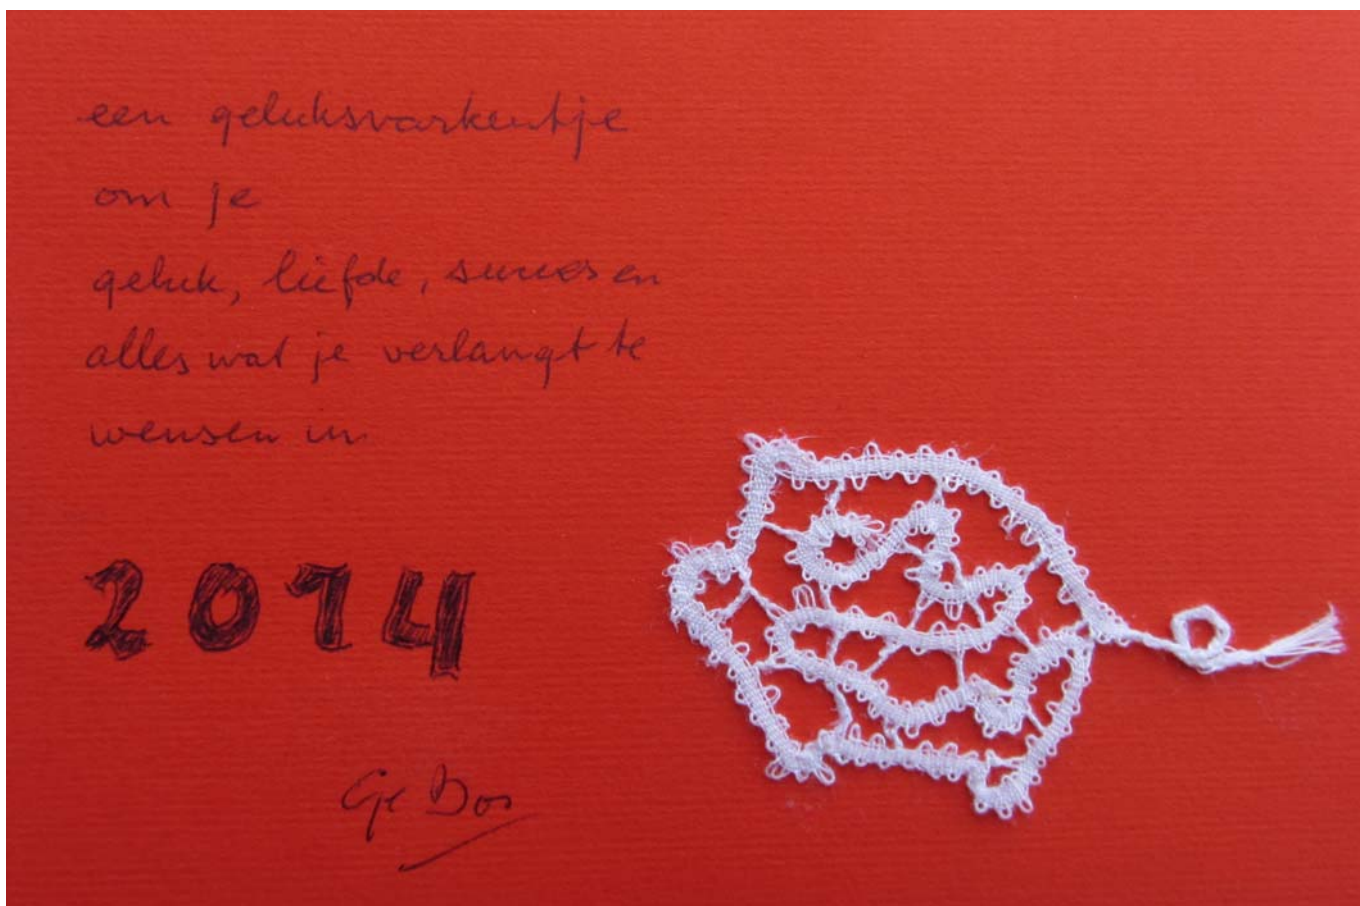 een geluksvarkentje
om je
geluk, liefde, succes en
alles wat je verlangt te
wensen in
2014
Ge Bos